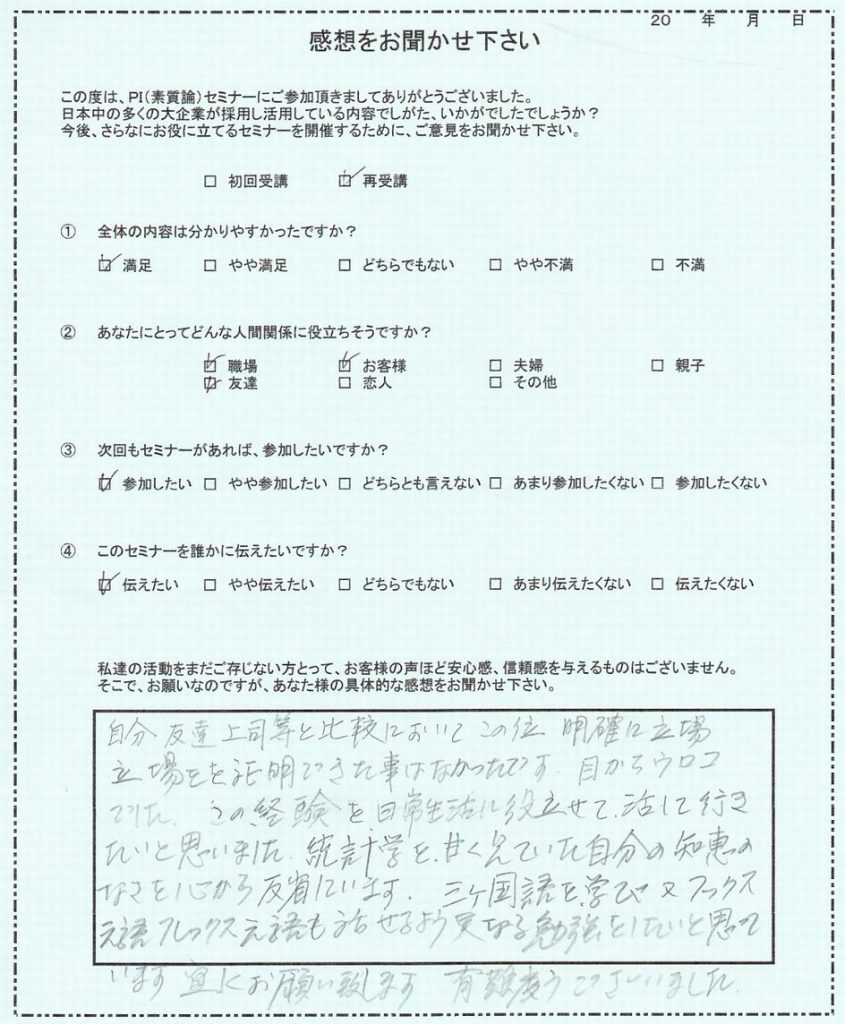 20　　年　　月　　日
感想をお聞かせ下さい
この度は、PI（素質論）セミナーにご参加頂きましてありがとうございました。
日本中の多くの大企業が採用し活用している内容でしがた、いかがでしたでしょうか？
今後、さらなにお役に立てるセミナーを開催するために、ご意見をお聞かせ下さい。
□ 初回受講　☑ 再受講
① 全体の内容は分かりやすかったですか？
☑ 満足　□ やや満足　□ どちらでもない　□ やや不満　□ 不満
② あなたにとってどんな人間関係に役立ちそうですか？
☑ 職場　☑ お客様　□ 夫婦　□ 親子
☑ 友達　□ 恋人　□ その他
③ 次回もセミナーがあれば、参加したいですか？
☑ 参加したい　□ やや参加したい　□ どちらとも言えない　□ あまり参加したくない　□ 参加したくない
④ このセミナーを誰かに伝えたいですか？
☑ 伝えたい　□ やや伝えたい　□ どちらでもない　□ あまり伝えたくない　□ 伝えたくない
私達の活動をまだご存じない方とって、お客様の声ほど安心感、信頼感を与えるものはございません。
そこで、お願いなのですが、あなた様の具体的な感想をお聞かせ下さい。
自分 友達 上司等と比較においてこの位 明確に立場
立場をを証明できた事はなかったです. 目からウロコ
でした. この経験を日常生活に役立せて、活して行き
たいと思いました. 統計学を、甘く見ていた自分の知恵の
なさを心から反省しています. 三ヶ国語を学び 又
フレックス言語も話せるよう更なる勉強をしたいと思って
います 宜しくお願い致します 有難うございました.